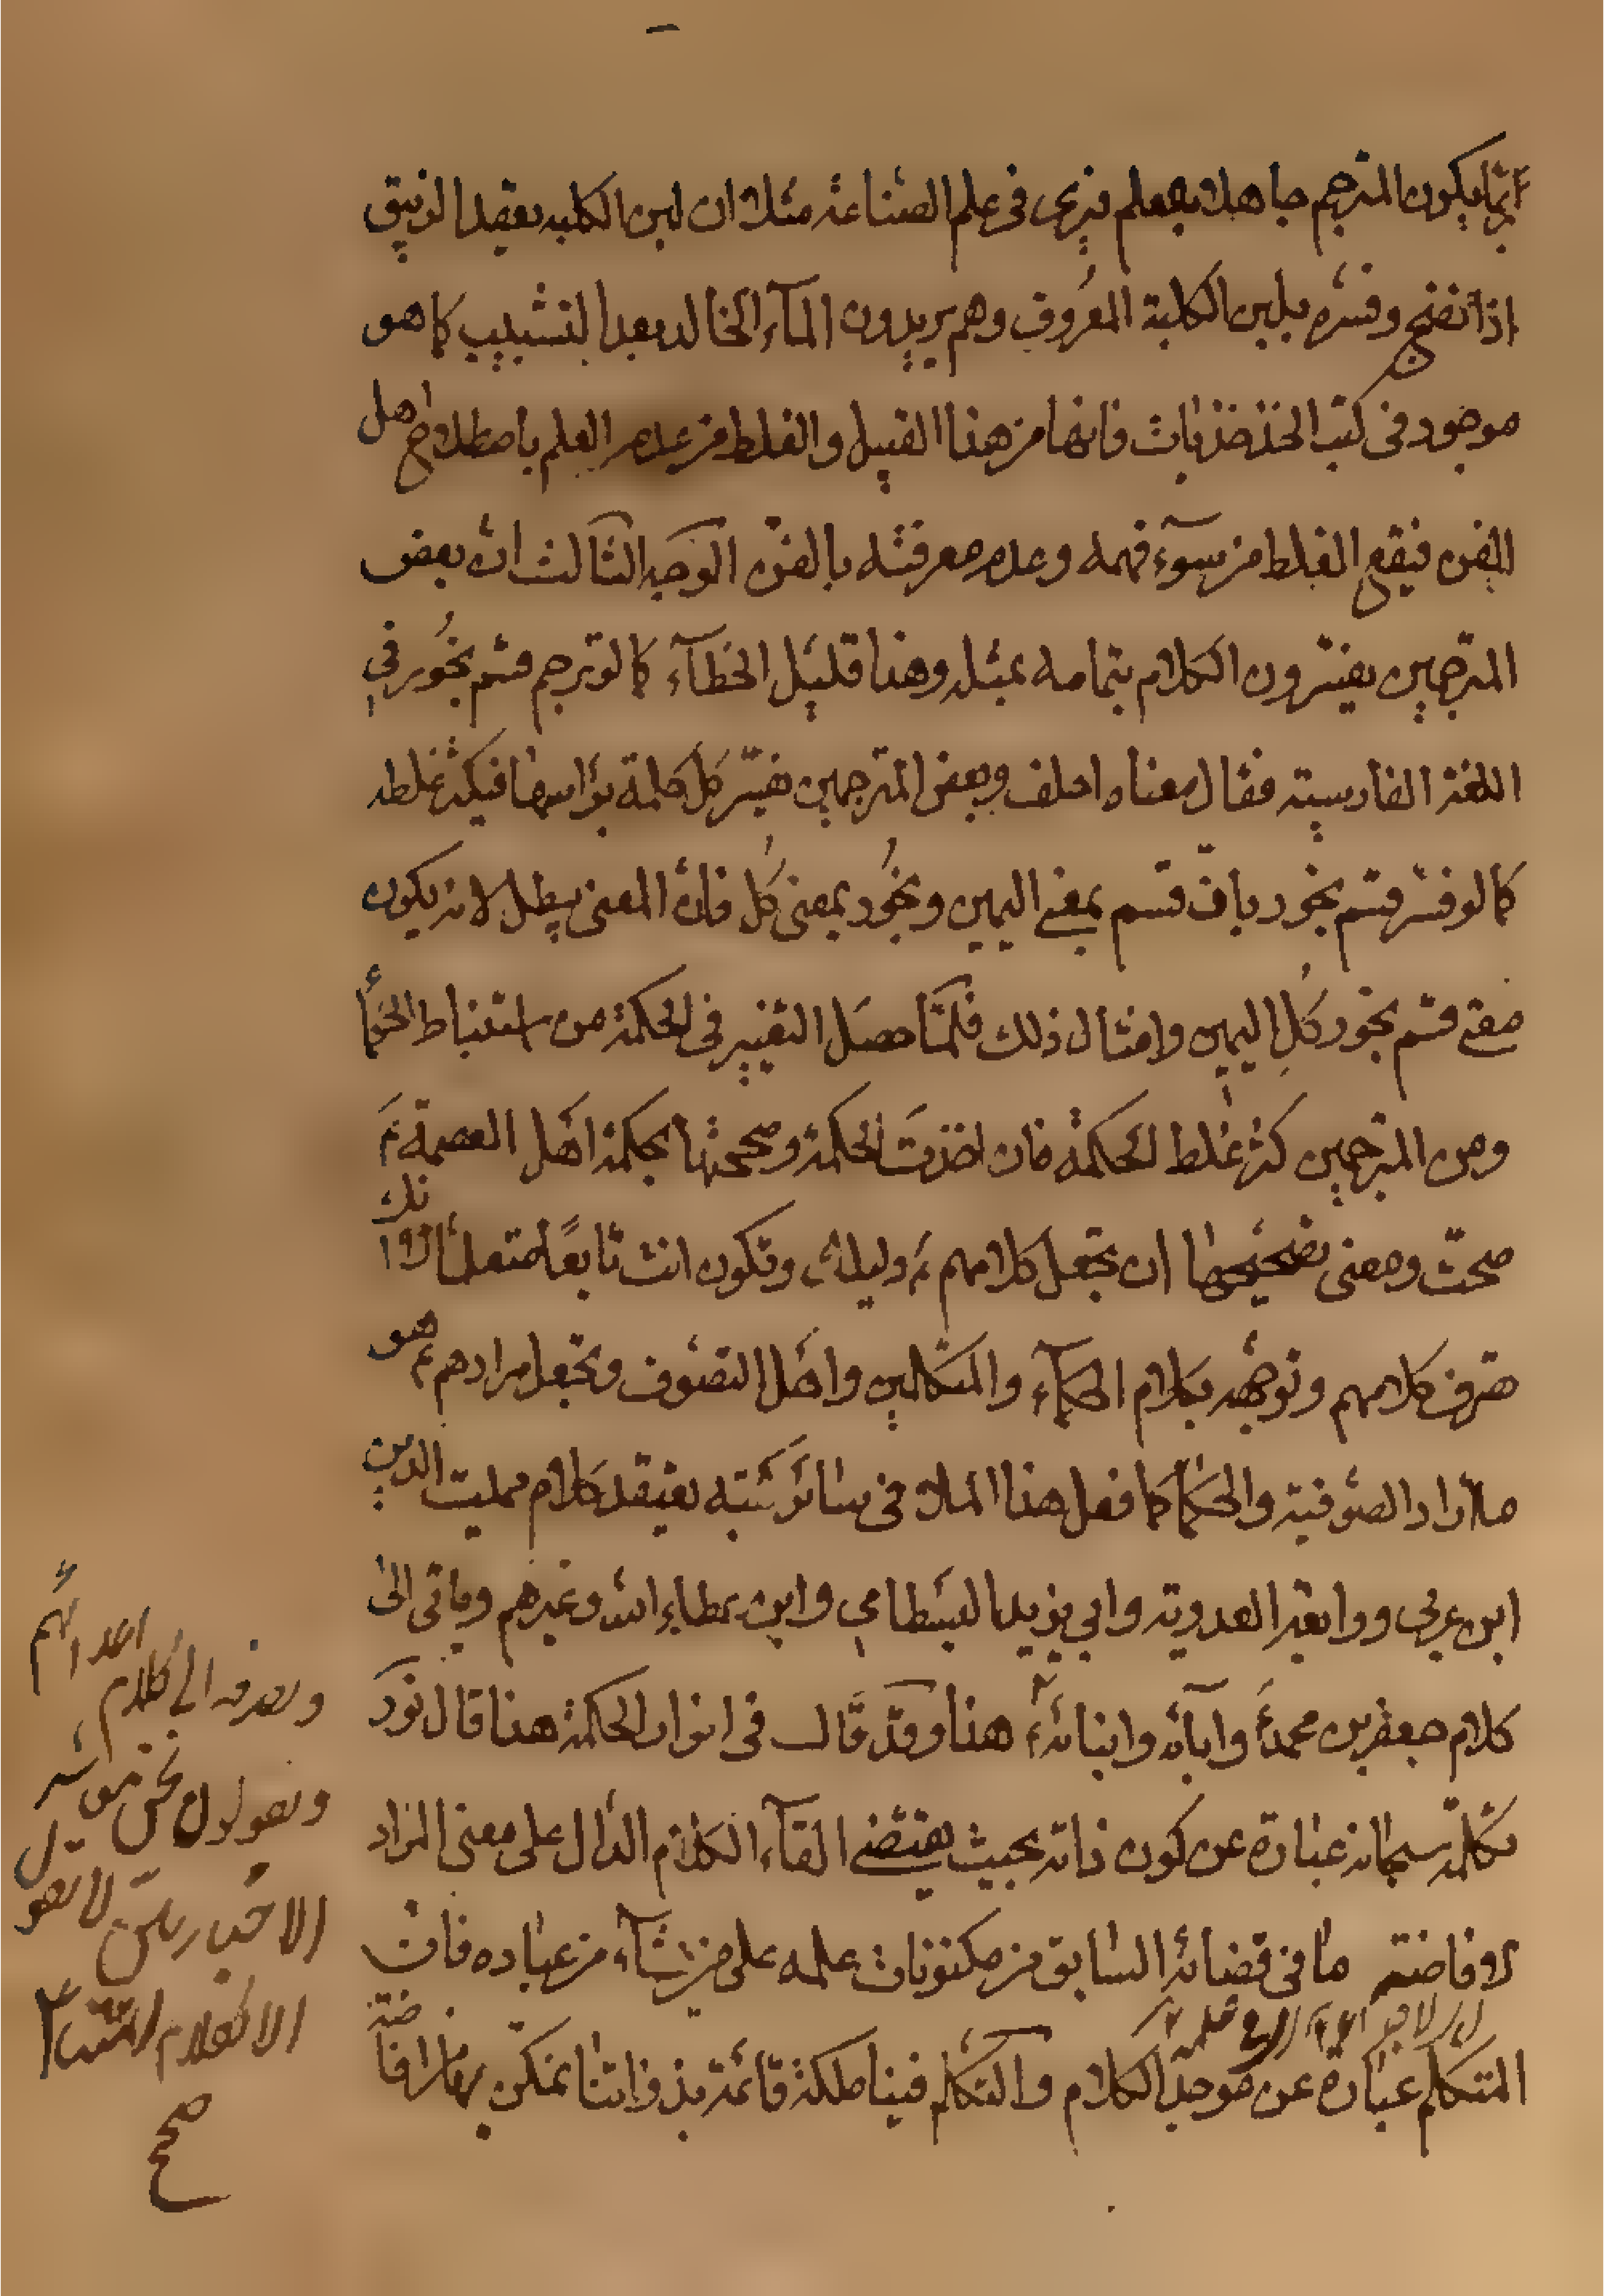 انما يكون المترجم جاهلا بعلم فيرى في علم الصناعة مثلا ان لبن الكلبه يعقد الزيبق
اذا نضج وفسره بلبن الكلبة المعروف وهم يريدون المآء الخالد بعد التشبيب كما هو
موجود في كتب فانها من هذا القبيل والغلط من عدم العلم باصطلاح اهل
الفن فيقع الغلط من سوء فهمه وعدم معرفته بالفن الوجه الثالث ان بعض
المترجمين يفسرون الكلام بتمامه بمثله وهذا قليل الخطآء كما لو ترجم قسم بخور في
اللغة الفارسية فقال معناه احلف وبعض المترجمين يفسر كل كلمة براسها فيكثر غلطه
كما لو فسر قسم بخور بان قسم بمعنى اليمين وبخور بمعنى كل فان المعنى يبطل لانه يكون
معنى قسم بخور كل اليمين وامثال ذلك فلما حصل التغيير في الحكمة من استنباط الحكمأ
ومن المترجمين كثر غلط الحكمة فان اخذت الحكمة وصححتها بحكمة اهل العصمة ع
صحت ومعنى تصحيحها ان تجعل كلامهم ع دليلا وتكون انت تابعا متعلما لا انك
تصرف كلامهم وتوجهه بكلام الحكمآء والمتكلمين واهل التصوف وتجعل مرادهم ع هو
ما اراد الصوفية والحكما كما فعل هذا الملا في سائر كتبه يعتقد كلام مميت الدين
ابن عربي ورابعة العدوية وابي يزيد البسطامي وابن عطاء الله وغيرهم وياتى الى
كلام جعفر بن محمد ع وآبائه وابنائه ع هنا وقد قال في انوار الحكمة هنا قال نور
تكلمه سبحانه عبارة عن كون ذاته بحيث يقتضى القآء الكلام الدال على معنى المراد
لافاضة ما في قضائه السابق من مكنونات علمه على من يشآء من عباده فان
المتكلم عبارة عن موجد الكلام والتكلم فينا ملكة قائمة بذواتنا نتمكن بها من افاضة
ويصرفه الى كلام اعدائهم
ويقولون نحن
الا لا نقول
الا كلام ائمتنا ع
صح